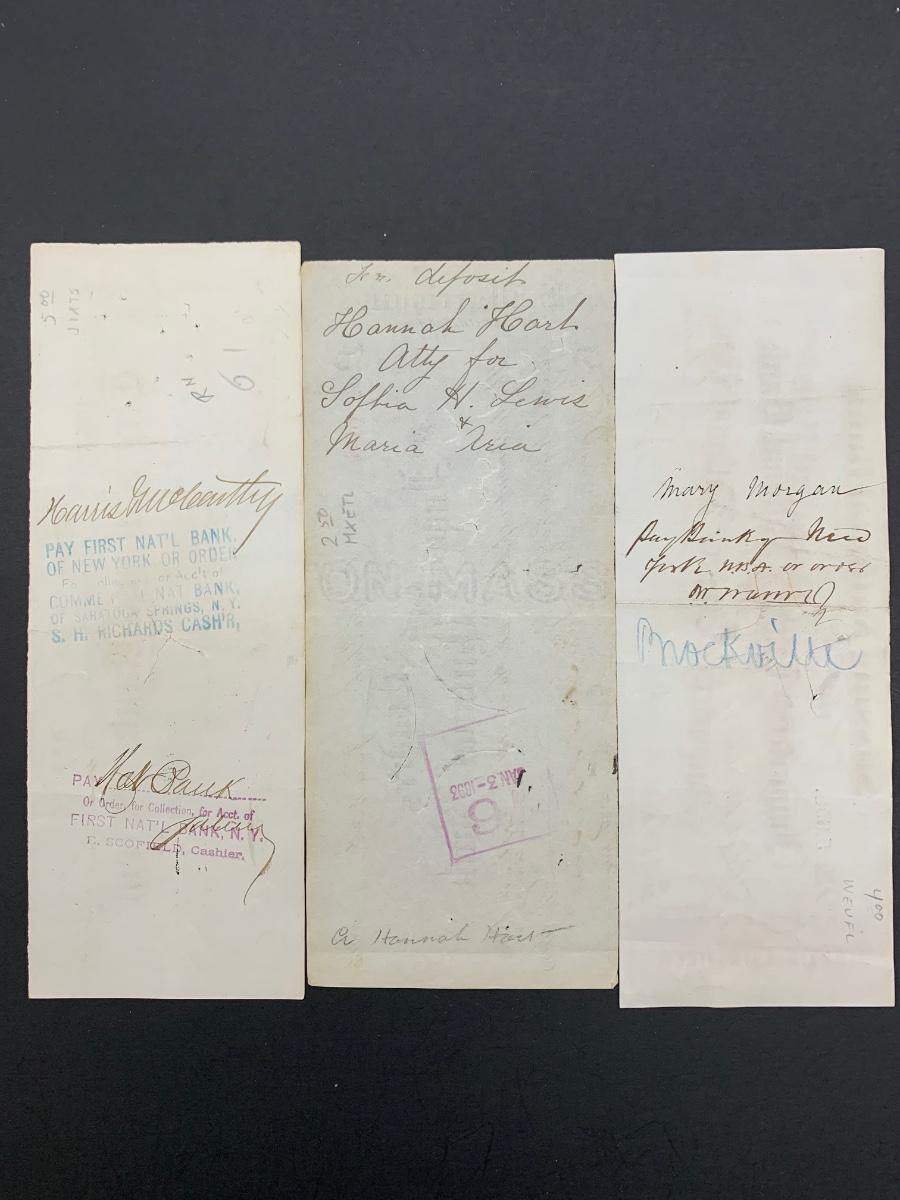 5 00
JIXTS
RN
61
Harris & McCarthy
PAY FIRST NAT'L BANK,
OF NEW YORK OR ORDER
For Collection for Acc't of
COMMERCIAL NAT BANK,
OF SARATOGA SPRINGS, N. Y.
S. H. RICHARDS CASH'R,
PAY Nat Bank
Or Order, for Collection, for Acct. of
FIRST NAT'L BANK, N. Y.
E. SCOFIELD, Cashier.
deposit
Hannah Hart
Atty for
Sophia H. Lewis
&
Maria Aria
2 50
MXETL
JAN 3-1893
9
Hannah Hart
Mary Morgan
Pay New
York or order
Brockville
4 00
WEUFL